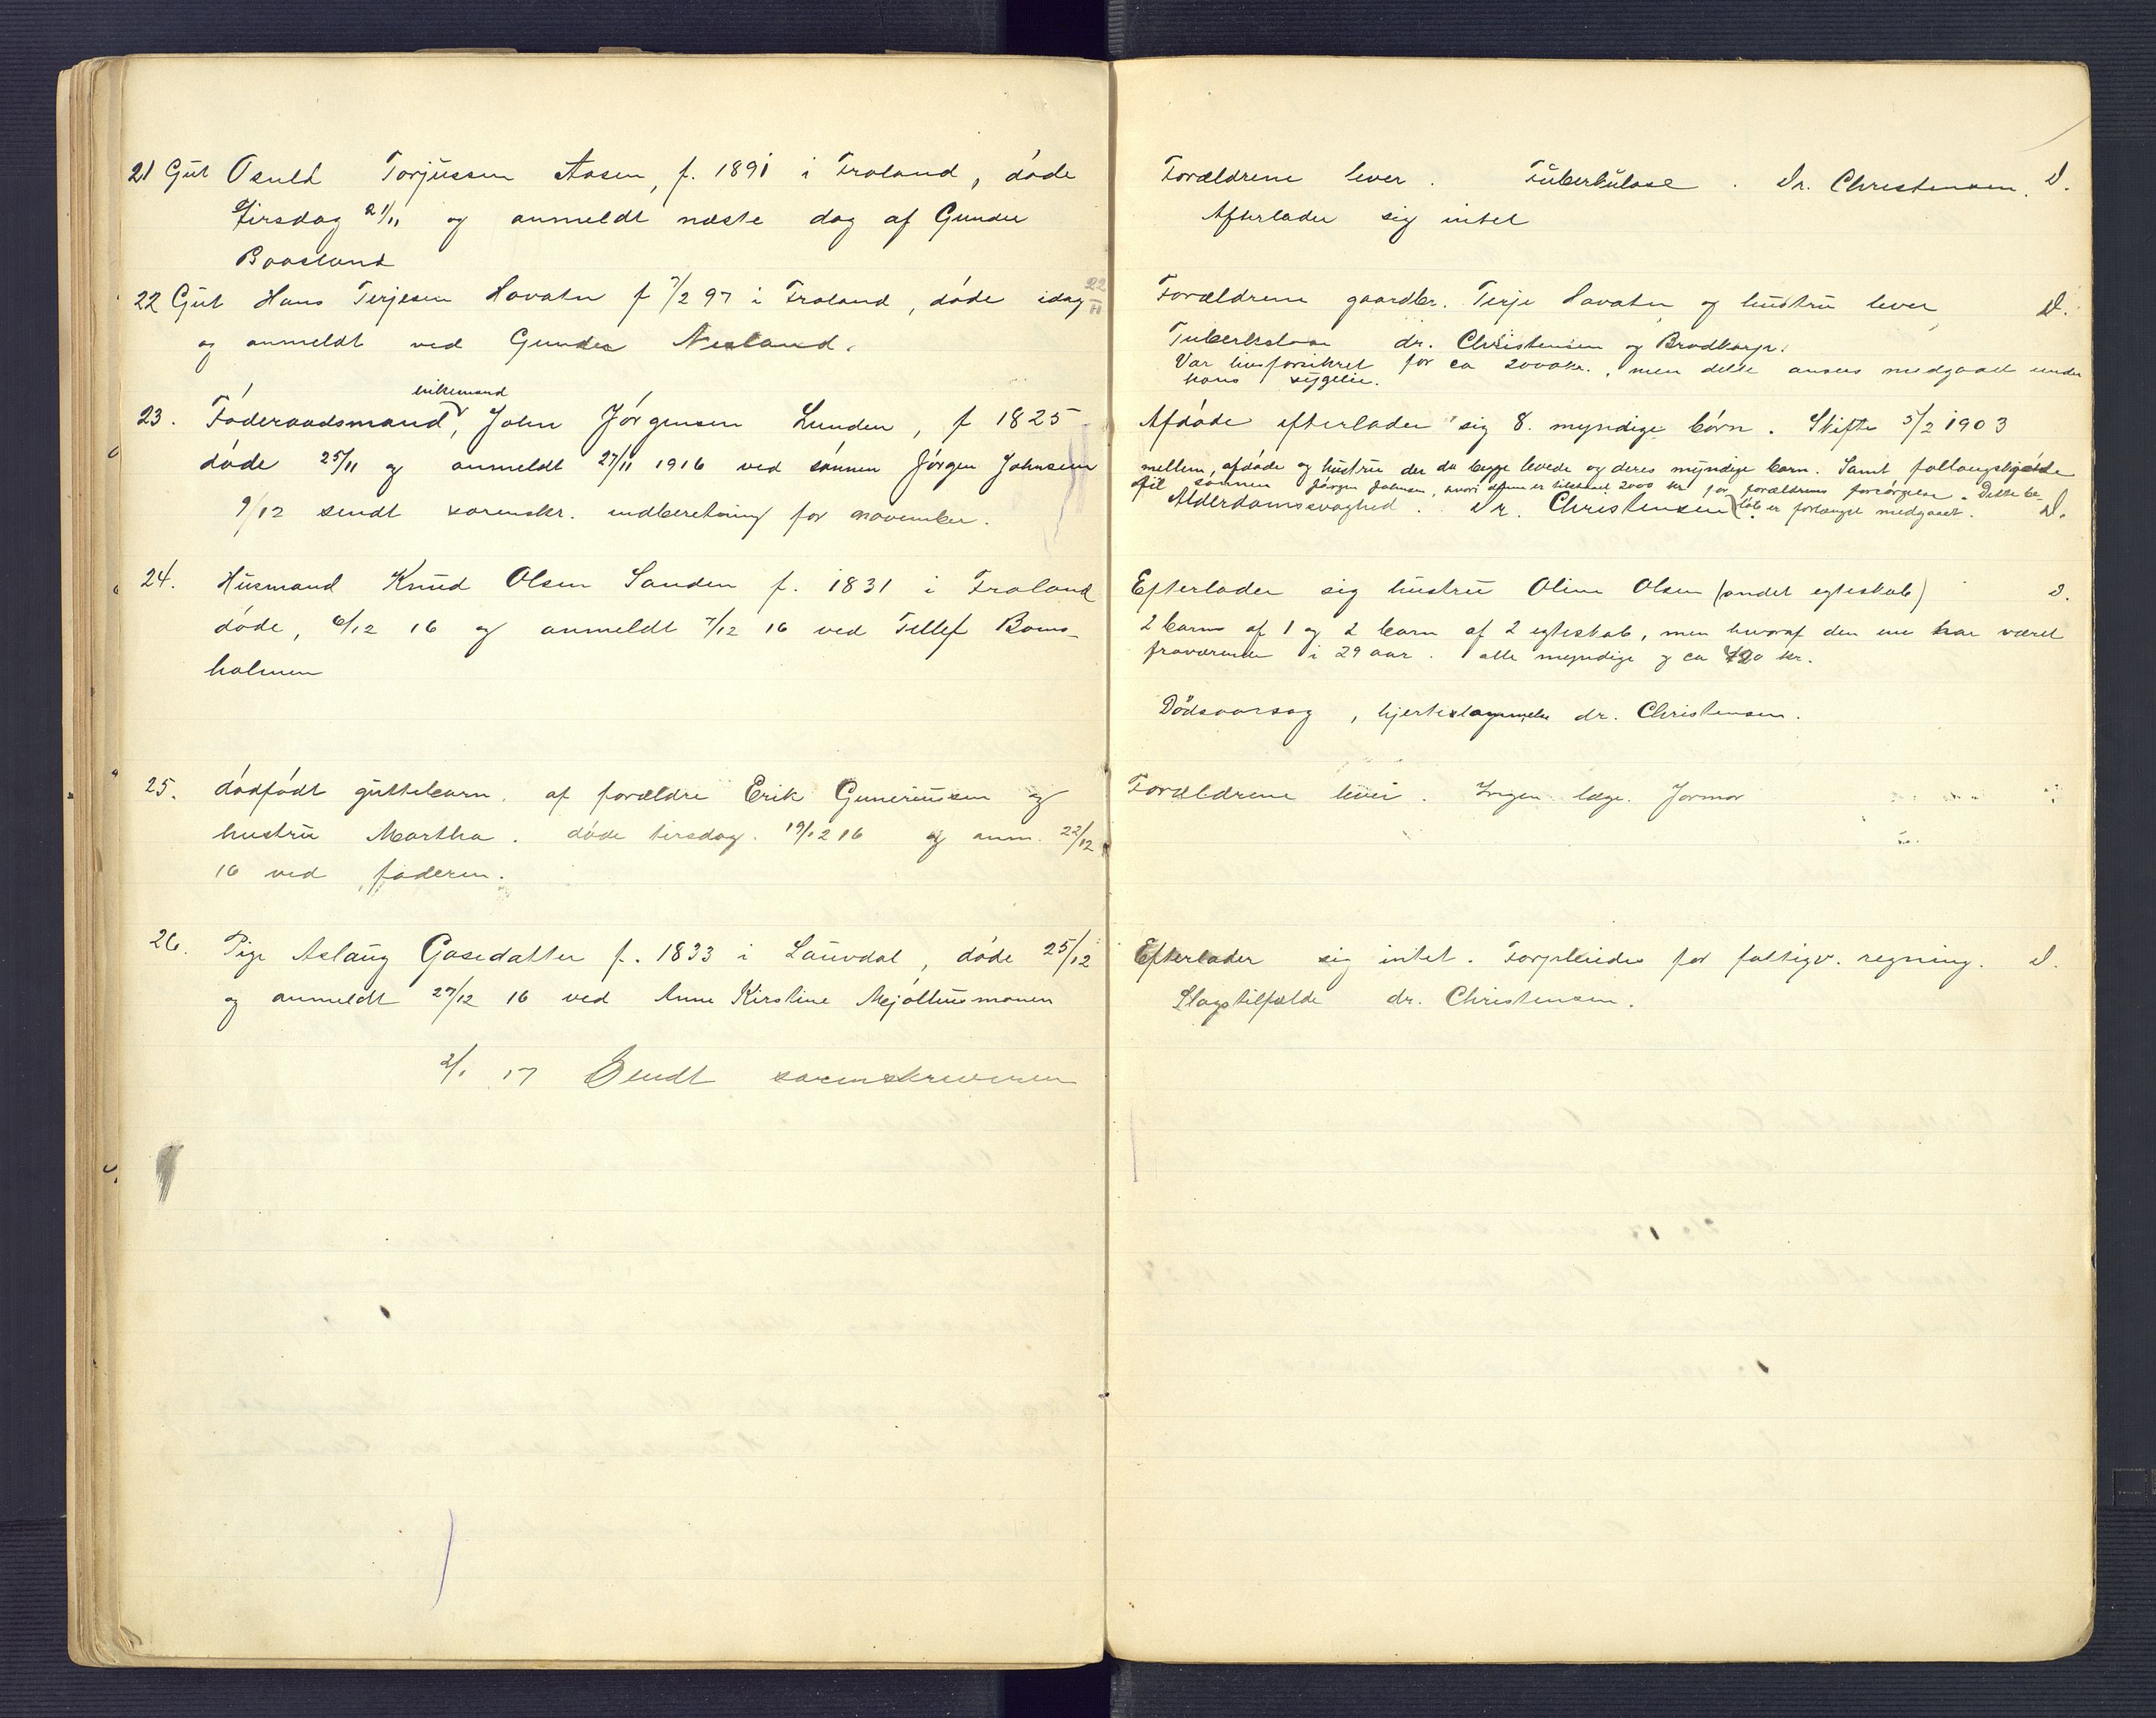 21 Gut Osuld Torjussen Aasen, f. 1891 i Froland, døde
Tirsdag 21/11 og anmeldt næste dag af Gunder
Baasland
22 Gut Hans Terjesen Hovatn f 7/2 97 i Froland, døde idag 22/11
og anmeldt ved Gunder Nesland.
enkemand
23. Føderaadsmand, John Jørgensen Lunden, f 1825
døde 25/11 og anmeldt 27/11 1916 ved sønnen Jørgen Johnsen
9/12 sendt sorenskr. indberetning for november.
24. Husmand Knud Olsen Sanden f. 1831 i Froland
døde, 6/12 16 og anmeldt 7/12 16 ved Tellef Boms-
holmen
25. dødfødt guttebarn af forældre Erik Gunerius­sen og
hustru Martha. døde tirsdag. 19/12 16 og anm. 22/12
16 ved faderen.
26. Pige Aslaug Gasedatter f. 1833 i Lauvdal, døde 25/12
og anmeldt 27/12 16 ved Anne Kirstine Mjøllusmonen
2/1 17 Sendt sorenskriveren
Forældrene lever. Tuberkulose. Dr. Christensen. D.
Afterlader sig intet
Forældrene gaardbr. Terje Hovatn og hustru lever D.
Tuberkulose dr. Christensen og Brodkorp.
Var livsforsikret for ca 2000 kr., men dette ansees medgaaet under
hans sygeleie.
Afdøde efterlader sig 8. myndige børn. Skifte 5/2 1903
mellem, afdøde og hustru der da begge levede og deres myndige barn. Samt
til sønnen Jørgen Johnsen, hvori er 2000 kr for forældrens forsørgelse. Dette be-
Alderdomssvaghed. Dr. Christensen løb er forlængst medgaaet. D.
Efterlader sig hustru Oline Olsen (andet egteskab) D.
2 barn af 1 og 2 barn af 2 egteskab, men hvoraf den ene har været
fraværende i 29 aar. alle myndige og ca kr.
Dödsaarsag, hjerteslammelse dr. Christensen.
Forældrene lever. Ingen læge. Jormor
Efterlader sig intet. Forpleiedes for fattigv. regning. D.
Slagtilfælde dr. Christensen.